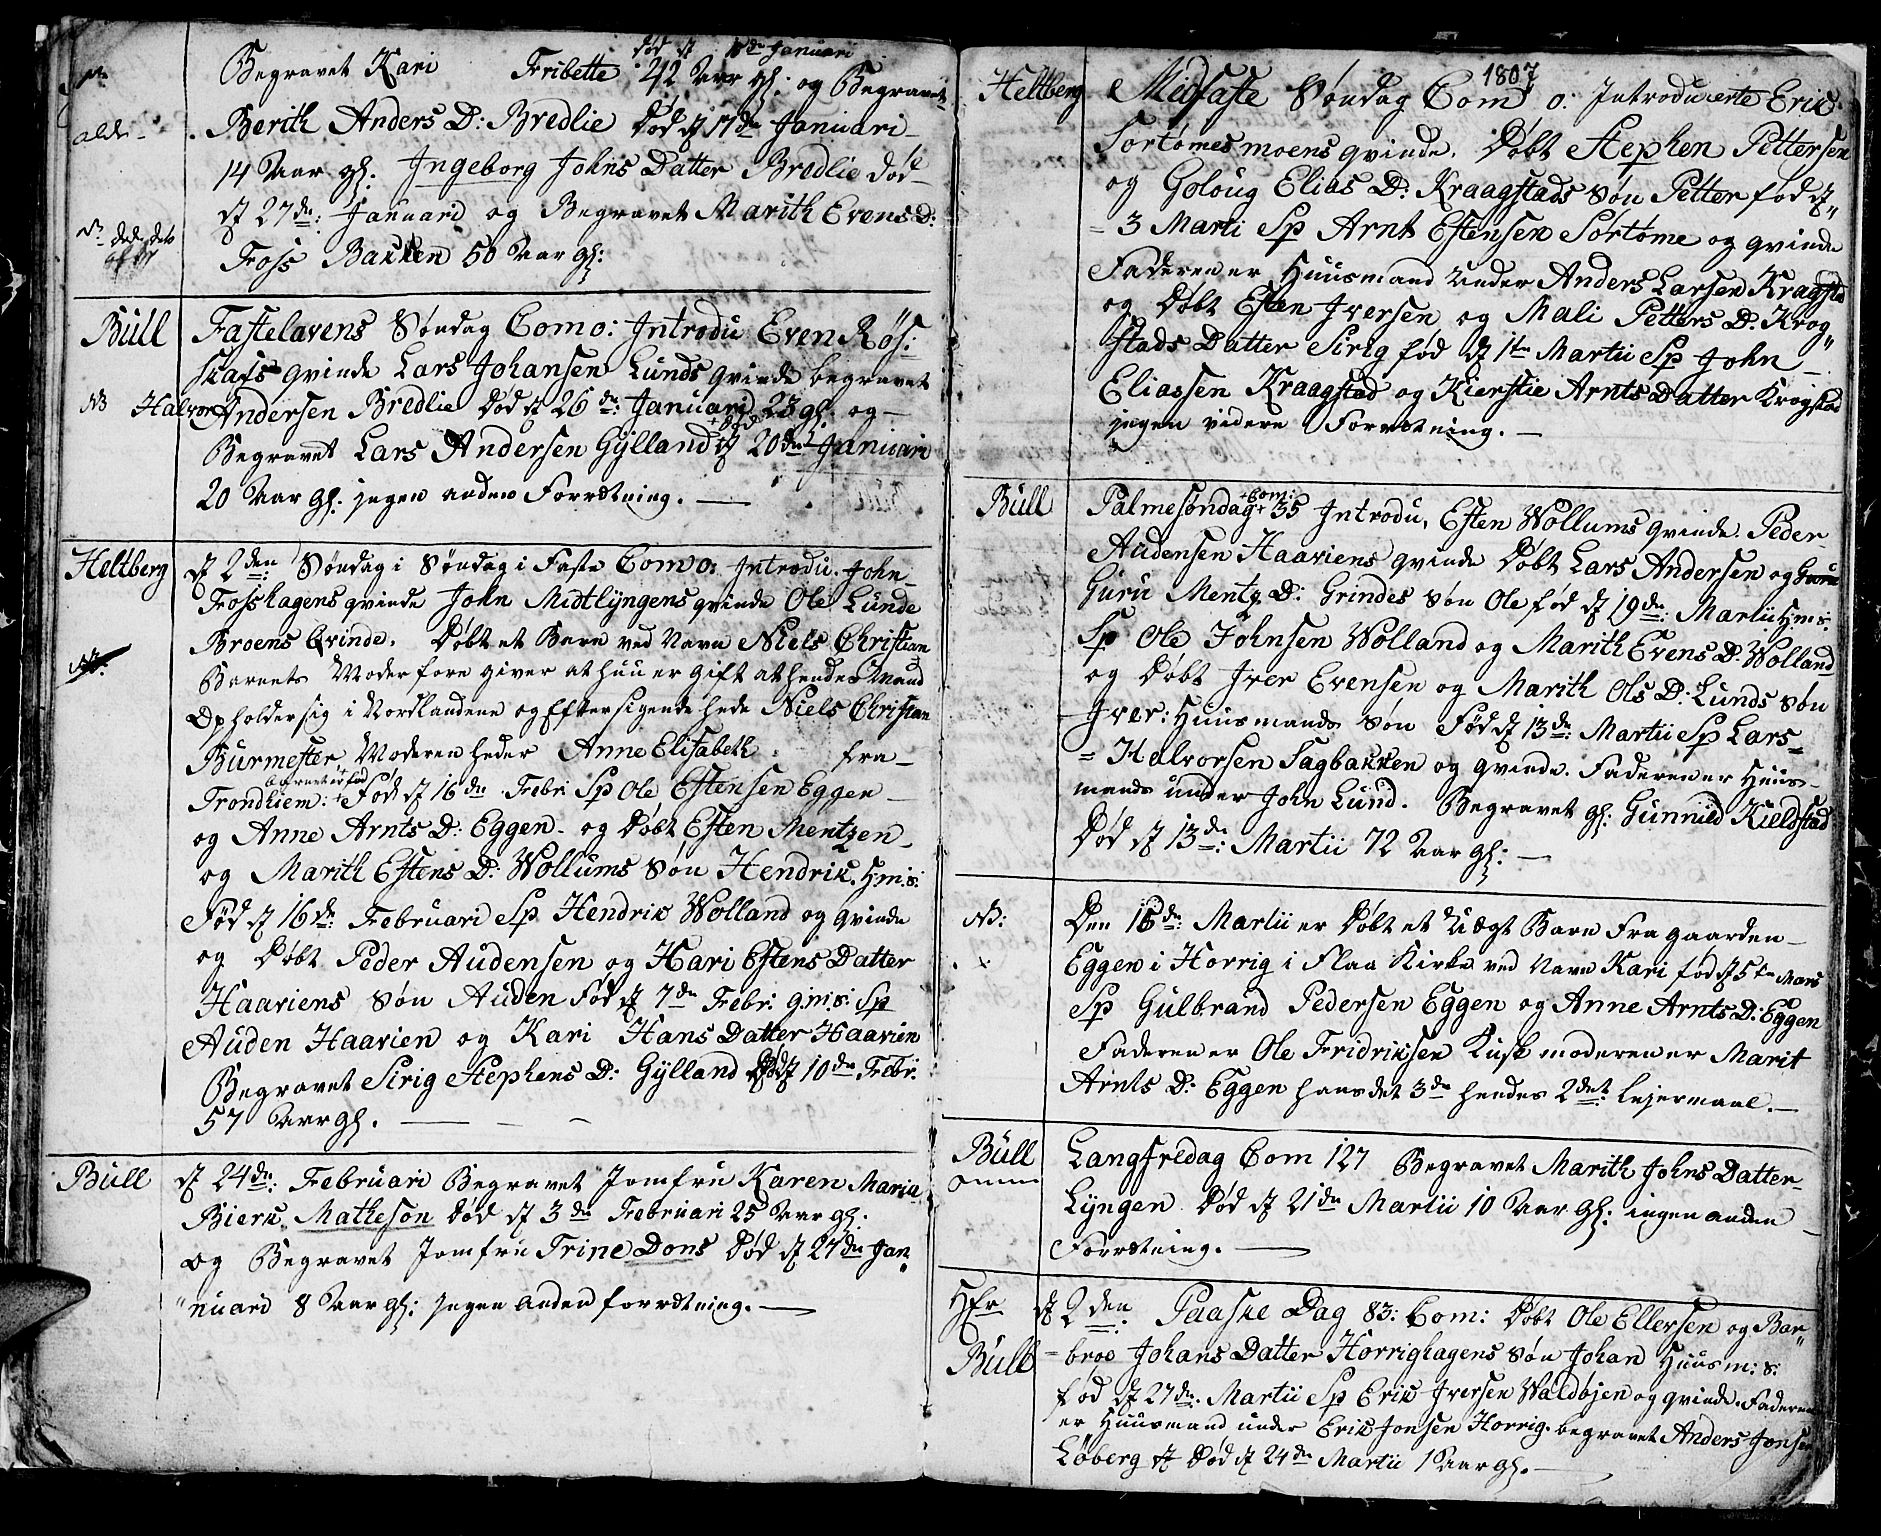 død d 1de Januari
Begravet Kari Fribette 42 Aar gl: og Begravet
Berith Anders D: Bredlie Død d 17de Januari
14 Aar gl: Ingeborg Johns Datter Bredlie død
d 27de: Januarii og Begravet Marith Evens D:
Foss Bakken 50 Aar gl:
Büll Fastelavens Søndag Com o: Introdu Even Røs:
skafs qvinde Lars Johansen Lunds qvinde begravet
NB Halvor Andersen Bredlie Død d 26de: Januarii 23 gl: og
Død
Begravet Lars Andersen Gylland d 20de Januari
20 Aar gl: jngen anden Forrætning.
Heltberg d 2den Søndag i Søndag i Faste Com o: Introdu. John
Fosshagens qvinde John Midtlyngens qvinde Ole Lunde
Broens Qvinde. Døbt et Barn ved Navn Niels Christian
NB: Barnets Moder fore giver at hun er gift at hendes Mand
Opholder sig i Nordlandene og Eftersigende hede Niels Christian
Burmester Moderen heder Anne Elisabeth fra
barnet er fød
Trondhiem: Fød d 16de Febr: Sp Ole Estensen Eggen
og Anne Arnts D: Eggen og Døbt Esten Mentzen
og Marith Estens D: Wollums Søn Hendrik. Hm:s:
Fød d 16de: Februarii Sp Hendrik Wolland og qvinde
og Døbt Peder Audensen og Kari Estens Datter
Haariens Søn Auden Fød d 7de Febr: gm:s: Sp
Auden Haarien og Kari Hans Datter Haarien
Begravet Sirig Stephens D: Gylland Død d 10de Febr:
57 Aar gl.
Büll d 24de: Februari Begravet Jomfru Karen Maria
Bierk Matheson Død d 3de Februari 25 Aar gl:
og Begravet Jomfru Trine Dons Død d 27de Jan
nuarii 8 Aar gl: jngen anden forrætning.
1807
Heltberg Midfaste Søndag Com o: Introducerte Erik
Sortømesmoens qvinde. Døbt Stephen Pettersen
og Goloug Elias D: Kraagstads Søn Petter fød d
3 Marti Sp Arnt Estensen Sørtøme og qvinde
Faderen er Huusmand under Anders Larsen Kragstad
og Døbt Esten Iversen og Mali Petters D: Krog
stads Datter Sirig fød d 1te Martii Sp John
Eliassen Kraagstad og Kierstie Arnts Datter Krogstad
jngen videre Forrætning.
Com:
Büll Palmesøndag 35 Introdu, Esten Wollums qvinde. Peder
Audensen Haariens qvinde Døbt Lars Andersen og
Guru Mentz D: Grindes Søn Ole fød d 19de: Martii Hm:s:
Sp Ole Johnsen Wolland og Marith Evens D: Wolland
og Døbt Iver Evensen og Marith Ols D: Lunds Søn
Iver: Huusmands Søn Fød d 13de: Martii Sp Lars
Halvorsen Sagbakken og qvinde. Faderen er Huus
mand under John Lund. Begravet gl: Gunnild Kieldstad
Død d 13de: Martii 72 Aar gl:
NB: Den 15de: Martii er Døbt et Uægt Barn Fra gaarden
Eggen i Horrig i Flaa Kirke ved Navn Kari fød d 5te Mars
Sp Gulbrand Pedersen Eggen og Anne Arnts D: Eggen
Faderen er Ole Fridriksen Kusk moderen er Marit
Arnts D: Eggen hans det 3de hendes 2det lejermaal.
Büll Langfredag Com 127 Begravet Marith Johns Datter
Lyngen Død d 21de Martii 10 Aar gl: ingen anden
Forrætning.
Hfr d 2den: Paaske Dag 83: Com: Døbt Ole Ellersen og Bar
Büll broe Johans Datter Horrighagens Søn Johan Huusm: s:
fød d 27de: Martii Sp Erik Iversen Waldøjen og qvinde. Faderen
er Huusmand under Erik Jonsen Horrig. begravet Anders Jonsen
Løberg Død d 24de Martii 1 Aar gl.